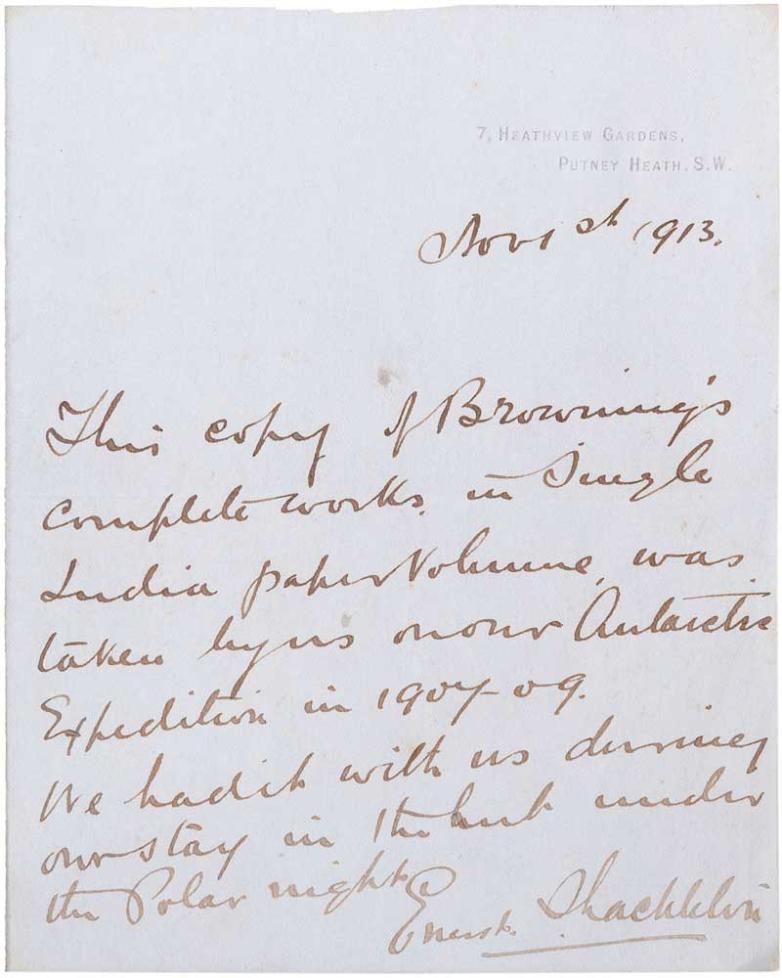 7, HEATHVIEW GARDENS,
PUTNEY HEATH. S.W.
Nov 1st 1913.
This copy of Browning's
complete works. in Single
India paper Volume, was
taken by us on our Antarctic
Expedition in 1907-09.
We had it with us during
our stay in the hut under
the Polar night
Ernest Shackleton